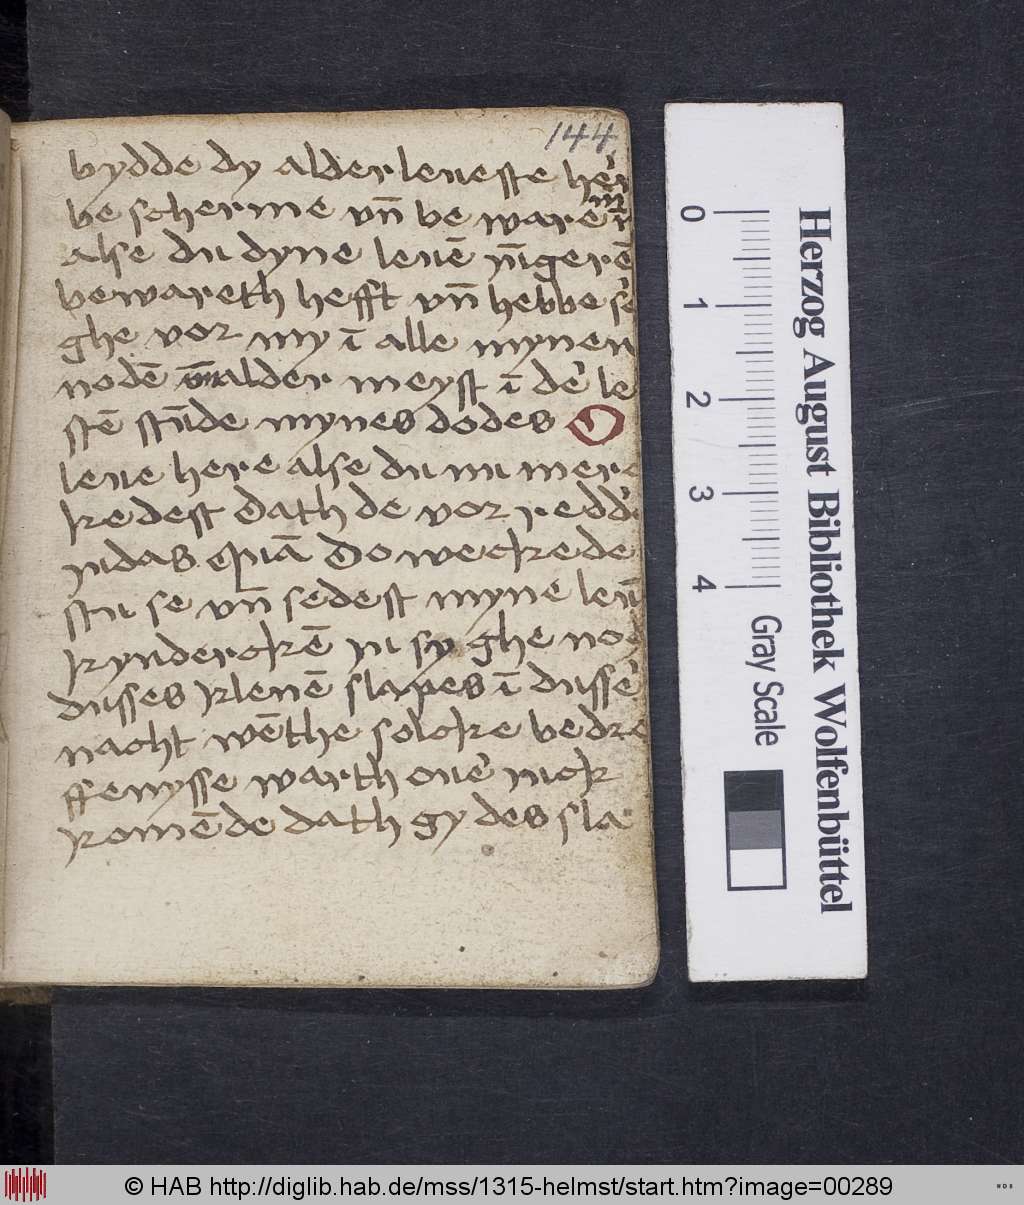 144
bydde dy alder leueste her
be scherme vn̄ be ware m̄
alse du dyne leuē yūgerē
bewareth hefft vn̄ hebbe sor
ghe vor my ī alle mynen
nodē vn̄ alder meyst ī der le
stē stūde mynes dodes O
leue here alse du nu mer
kedest dath de vor redder
iudas quā Do weckede
stu se vn̄ sedest myne leuē
kynderckē ju sy ghe noch
dusses klenē slapes ī dusser
nacht wēthe solcke bedro
ffenysse warth ouer iuck
komē de dath gy des sla
0 1 2 3 4
Gray Scale
Herzog August Bibliothek Wolfenbüttel
© HAB http://diglib.hab.de/mss/1315-helmst/start.htm?image=00289